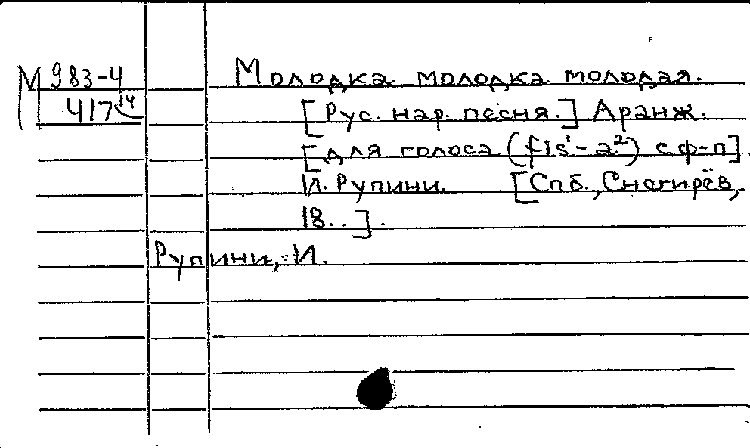 М 983-4
417 14
Молодка молодка молодая.
[Рус. нар. песня.] Аранж.
[для голоса (fis¹-a²) с ф-п]
И. Рупини. [Спб., Снегирёв,
18..].
Рупини, И.